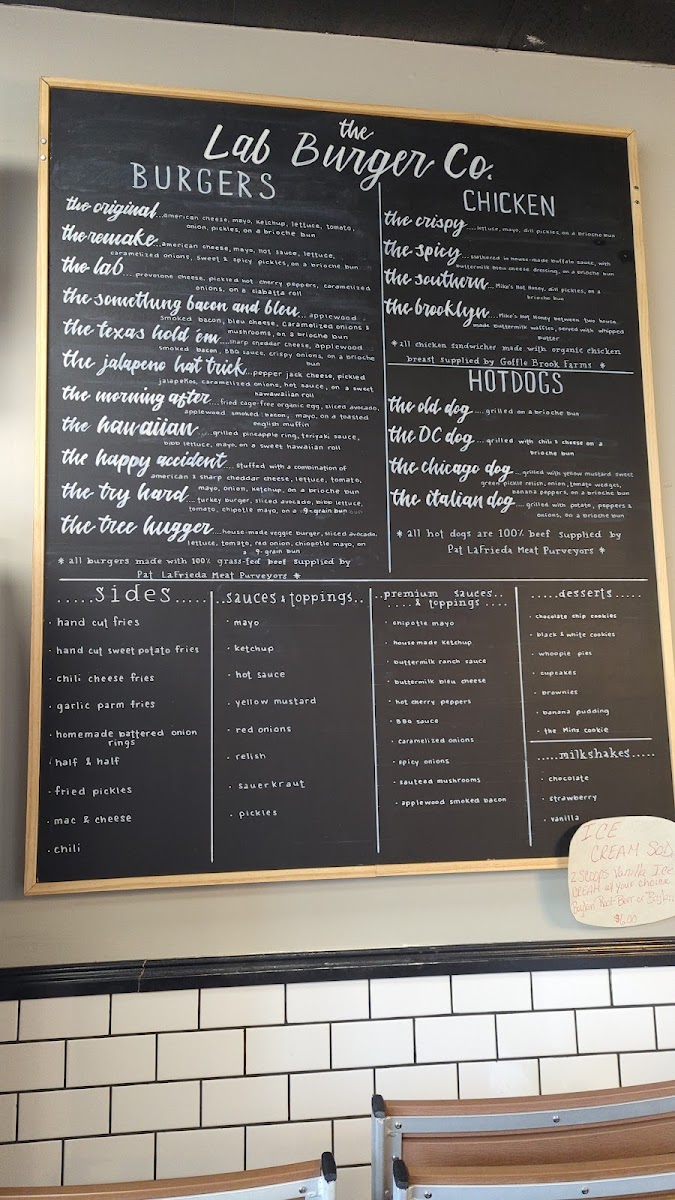 the
Lab Burger Co.
BURGERS
the original...american cheese, mayo, ketchup, lettuce, tomato,
onion, pickles, on a brioche bun
the remake...american cheese, mayo, hot sauce, lettuce,
caramelized onions, sweet & spicy pickles, on a brioche bun
the lab...provolone cheese, pickled hot cherry peppers, caramelized
onions, on a ciabatta roll
the something bacon and bleu...applewood
smoked bacon, bleu cheese, caramelized onions &
mushrooms, on a brioche bun
the texas hold em...sharp cheddar cheese, applewood
smoked bacon, BBQ sauce, crispy onions, on a brioche
bun
the jalapeno hat trick...pepper jack cheese, pickled
jalapeños, caramelized onions, hot sauce, on a sweet
hawaiian roll
the morning after...fried cage-free organic egg, sliced avocado,
applewood smoked bacon, mayo, on a toasted
english muffin
the hawaiian....grilled pineapple ring, teriyaki sauce,
bibb lettuce, mayo, on a sweet hawaiian roll
the happy accident....stuffed with a combination of
american & sharp cheddar cheese, lettuce, tomato,
mayo, onion, ketchup, on a brioche bun
the try hard...turkey burger, sliced avocado, bibb lettuce,
tomato, chipotle mayo, on a 9-grain bun
the tree hugger....house-made veggie burger, sliced avocado,
lettuce, tomato, red onion, chiopotle mayo, on
a 9-grain bun
* all burgers made with 100% grass-fed beef supplied by
Pat LaFrieda Meat Purveyors *
CHICKEN
the crispy...lettuce, mayo, dill pickles, on a brioche bun
the spicy...slathered in house-made buffalo sauce, with
buttermilk bleu cheese dressing, on a brioche bun
the southern...Mike's Hot Honey, dill pickles, on a
brioche bun
the brooklyn...Mike's Hot Honey between two house
made buttermilk waffles, served with whipped
butter
*all chicken sandwiches made with organic chicken
breast supplied by Goffle Brook Farms *
HOTDOGS
the old dog....grilled on a brioche bun
the DC dog...grilled with chili & cheese on a
brioche bun
the chicago dog...grilled with yellow mustard, sweet
green pickle relish, onion, tomato wedges,
banana peppers, on a brioche bun
the italian dog....grilled with potato, peppers &
onions, on a brioche bun
* all hot dogs are 100% beef supplied by
Pat LaFrieda Meat Purveyors *
.....sides.....
· hand cut fries
· hand cut sweet potato fries
· chili cheese fries
· garlic parm fries
· homemade battered onion
rings
· half & half
· fried pickles
· mac & cheese
· chili
..sauces & toppings..
· mayo
· ketchup
· hot sauce
· yellow mustard
· red onions
· relish
· sauerkraut
· pickles
..premium sauces..
.... & toppings ....
· chipotle mayo
· housemade ketchup
· buttermilk ranch sauce
· buttermilk bleu cheese
· hot cherry peppers
· BBQ sauce
· caramelized onions
· spicy onions
· sautead mushrooms
· applewood smoked bacon
.....desserts.....
· chocolate chip cookies
· black & white cookies
· whoopie pies
· cupcakes
· brownies
· banana pudding
· the Mina cookie
.....milkshakes.....
· chocolate
· strawberry
· vanilla
ICE
CREAM SOD
2 SCOOPS Vanilla Ice
CREAM w/ your choice
Root Beer or
$6.00